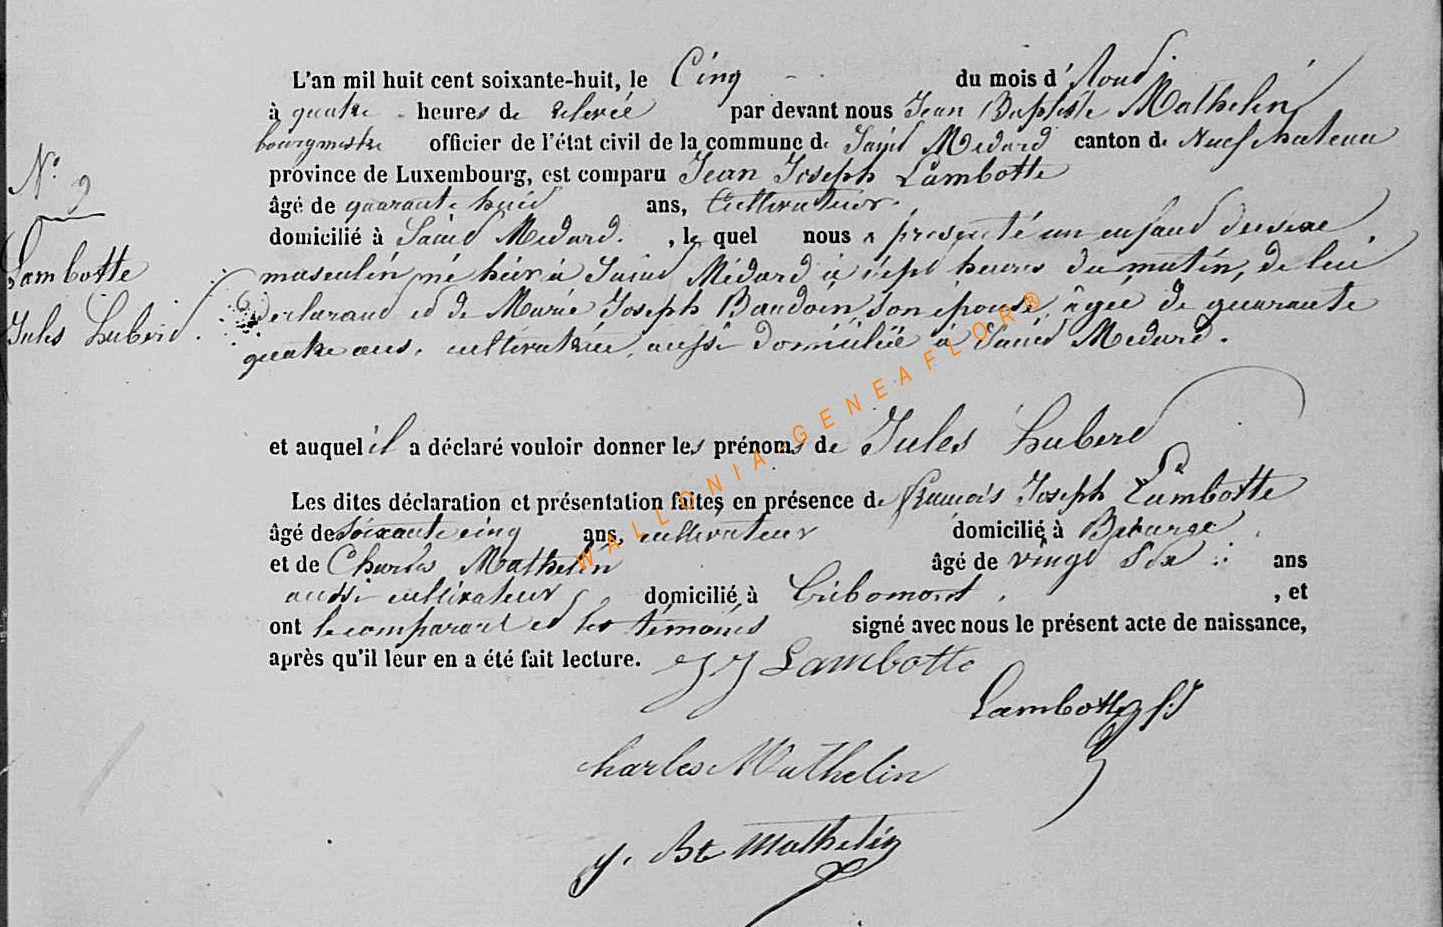 L'an mil huit cent soixante-huit, le Cinq du mois d'Aout
à quatre heures de relevée par devant nous Jean Baptiste Mathelin
bourgmestre officier de l'état civil de la commune de Saint Médard canton de Neufchateau
province de Luxembourg, est comparu Jean Joseph Lambotte
âgé de quarante huit ans, Cultivateur,
domicilié à Saint Médard. , le quel nous a présenté un enfant du sexe
N° 9
Lambotte
Jules Hubert.
masculin, né hier à Saint Médard à sept heures du matin, de lui
déclarant et de Marie Joseph Baudoin, son épouse, âgée de quarante
quatre ans, cultivatrice, aussi domiciliée à Saint Médard.
et auquel il a déclaré vouloir donner les prénoms de Jules Hubert
Les dites déclaration et présentation faites en présence de François Joseph Lambotte
âgé de soixante cinq ans, cultivateur domicilié à
et de Charles Mathelin âgé de vingt six ans
aussi cultivateur domicilié à Gribomont , et
ont le comparant et les témoins signé avec nous le présent acte de naissance,
après qu'il leur en a été fait lecture. J J Lambotte
Lambotte f.j
Charles Mathelin
J. Bte Mathelin
WALLONIA-GENEAFLOR®